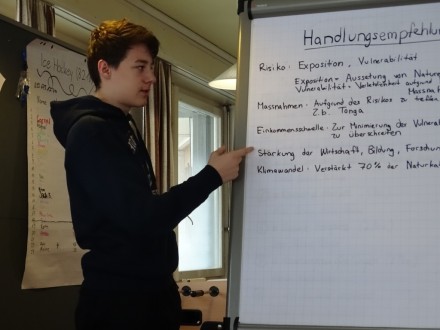 Ice Hockey
Handlungsempfehlun
Risiko: Exposition, Vulnerabilität
Exposition = Aussetzung von Natur
Vulnerabilität = Verletzbarkeit aufgrund
Massnah
Massnahmen: Aufgrund des Risikos zu treffen
Z.b. Tonga
Einkommensschwelle: Zur Minimierung der Vulnera
zu überschreiten
Stärkung der Wirtschaft, Bildung, Forschun
Klimawandel: Verstärkt 70% der Naturka